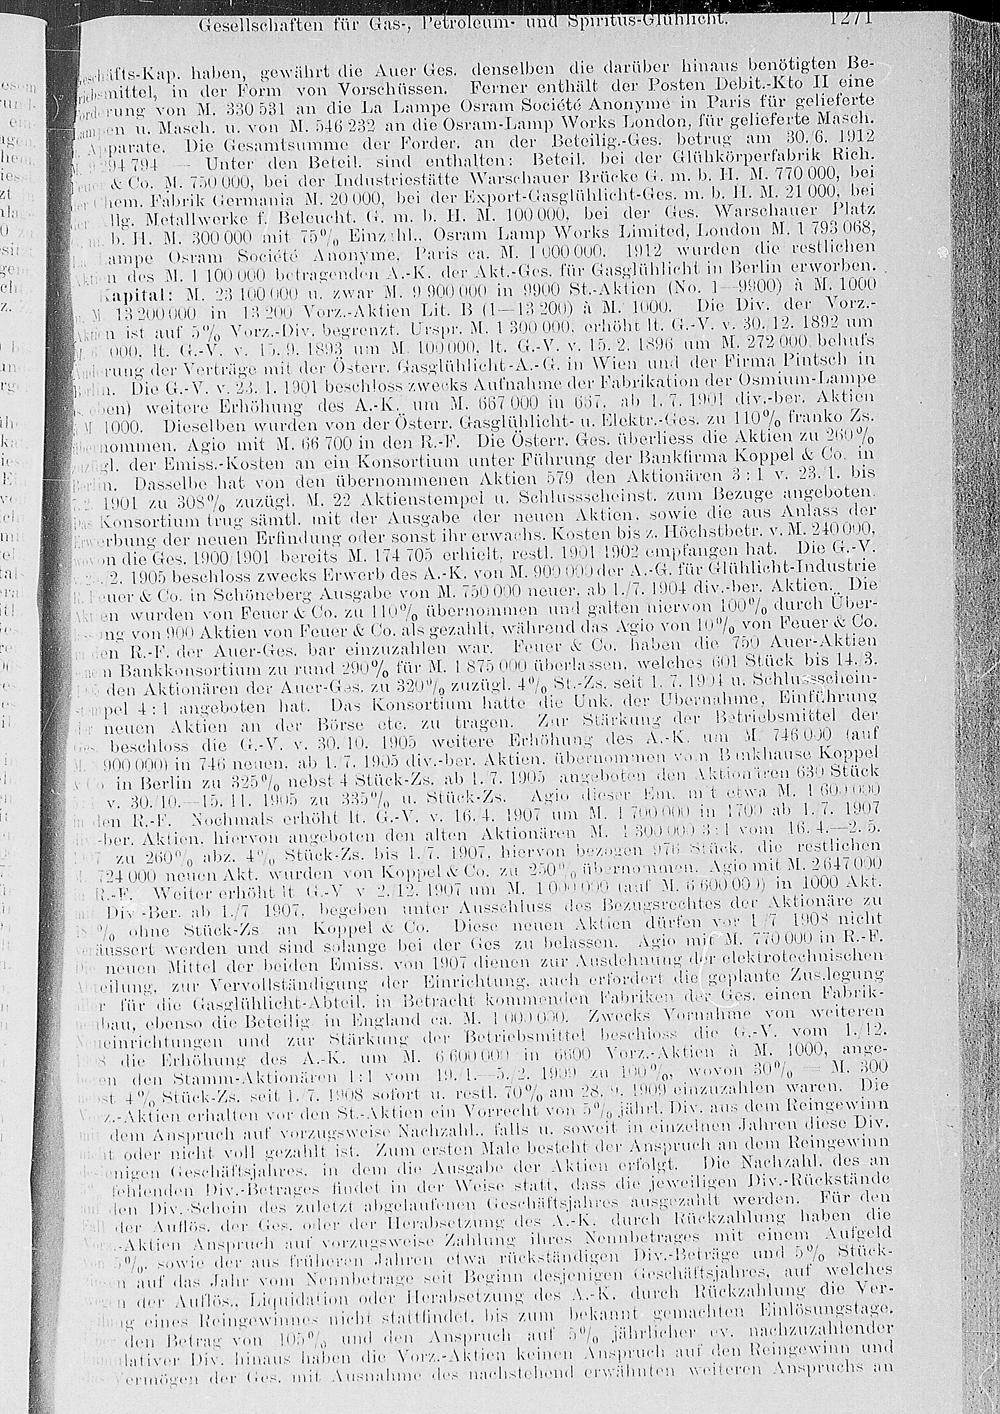 Gesellschaften für Gas-, Petroleum- und Spiritus-Glühlicht. 1271
schäfts-Kap. haben, gewährt die Auer Ges. denselben die darüber hinaus benötigten Be-
triebsmittel, in der Form von Vorschüssen. Ferner enthält der Posten Debit.-Kto II eine
Forderung von M. 330 531 an die La Lampe Osram Société Anonyme in Paris für gelieferte
Lampen u. Masch. u. von M. 546 232 an die Osram-Lamp Works London, für gelieferte Masch.
u. Apparate. Die Gesamtsumme der Forder. an der Beteilig.-Ges. betrug am 30./6. 1912
294 794 — Unter den Beteil. sind enthalten: Beteil. bei der Glühkörperfabrik Rich.
Feuer & Co. M. 750 000, bei der Industriestätte Warschauer Brücke G. m. b. H. M. 770 000, bei
der Chem. Fabrik Germania M. 20 000, bei der Export-Gasglühlicht-Ges. m. b. H. M. 21 000, bei
der Allg. Metallwerke f. Beleucht. G. m. b. H. M. 100 000, bei der Ges. Warschauer Platz
m. b. H. M. 300 000 mit 75% Einzahl., Osram Lamp Works Limited, London M. 1 793 068,
La Lampe Osram Société Anonyme, Paris ca. M. 1 000 000. 1912 wurden die restlichen
Aktien des M. 1 100 000 betragenden A.-K. der Akt.-Ges. für Gasglühlicht in Berlin erworben.
Kapital: M. 23 100 000 u. zwar M. 9 900 000 in 9900 St.-Aktien (No. 1—9900) à M. 1000
u. M. 13 200 000 in 13 200 Vorz.-Aktien Lit. B (1—13 200) à M. 1000. Die Div. der Vorz.-
Aktien ist auf 5% Vorz.-Div. begrenzt. Urspr. M. 1 300 000, erhöht lt. G.-V. v. 30. 12. 1892 um
000, lt. G.-V. v. 15. 9. 1893 um M. 100 000, lt. G.-V. v. 15. 2. 1896 um M. 272 000 behufs
Änderung der Verträge mit der Österr. Gasglühlicht-A.-G. in Wien und der Firma Pintsch in
Berlin. Die G.-V. v. 23. 1. 1901 beschloss zwecks Aufnahme der Fabrikation der Osmium-Lampe
(s. oben) weitere Erhöhung des A.-K. um M. 667 000 in 667, ab 1. 7. 1901 div.-ber. Aktien
à M. 1000. Dieselben wurden von der Österr. Gasglühlicht- u. Elektr.-Ges. zu 110% franko Zs.
übernommen. Agio mit M. 66 700 in den R.-F. Die Österr. Ges. überliess die Aktien zu 260%
zuzügl. der Emiss.-Kosten an ein Konsortium unter Führung der Bankfirma Koppel & Co. in
Berlin. Dasselbe hat von den übernommenen Aktien 579 den Aktionären 3 : 1 v. 23. 1. bis
7. 2. 1901 zu 308% zuzügl. M. 22 Aktienstempel u. Schlussscheinst. zum Bezuge angeboten.
Das Konsortium trug sämtl. mit der Ausgabe der neuen Aktien, sowie die aus Anlass der
Erwerbung der neuen Erfindung oder sonst ihr erwachs. Kosten bis z. Höchstbetr. v. M. 240 000,
wovon die Ges. 1900/1901 bereits M. 174 705 erhielt, restl. 1901 1902 empfangen hat. Die G.-V.
2. 1905 beschloss zwecks Erwerb des A.-K. von M. 900 000 der A.-G. für Glühlicht-Industrie
R. Feuer & Co. in Schöneberg Ausgabe von M. 750 000 neuer, ab 1./7. 1904 div.-ber. Aktien. Die
Aktien wurden von Feuer & Co. zu 110% übernommen und galten hiervon 100% durch Über-
lassung von 900 Aktien von Feuer & Co. als gezahlt, während das Agio von 10% von Feuer & Co.
an den R.-F. der Auer-Ges. bar einzuzahlen war. Feuer & Co. haben die 750 Auer-Aktien
einem Bankkonsortium zu rund 290% für M. 1 875 000 überlassen, welches 601 Stück bis 14. 3.
den Aktionären der Auer-Ges. zu 320% zuzügl. 4% St.-Zs. seit 1. 7. 1904 u. Schlussschein-
stempel 4 : 1 angeboten hat. Das Konsortium hatte die Unk. der Übernahme, Einführung
der neuen Aktien an der Börse etc. zu tragen. Zur Stärkung der Betriebsmittel der
Ges. beschloss die G.-V. v. 30. 10. 1905 weitere Erhöhung des A.-K. um M. 746 000 (auf
M. 900 000) in 746 neuen, ab 1. 7. 1905 div.-ber. Aktien, übernommen von Bankhause Koppel
& Co. in Berlin zu 325% nebst 4 Stück-Zs. ab 1. 7. 1905 angeboten den Aktionären 630 Stück
v. 30./10.—15. 11. 1905 zu 335% u. Stück-Zs. Agio dieser Em. mit etwa M. 1 600 000
in den R.-F. Nochmals erhöht lt. G.-V. v. 16. 4. 1907 um M. 1 700 000 in 1700 ab 1. 7. 1907
div.-ber. Aktien, hiervon angeboten den alten Aktionären M. 1 300 000 3 : 1 vom 16. 4.—2. 5.
1907 zu 260% abz. 4% Stück-Zs. bis 1. 7. 1907, hiervon bezogen 976 Stück, die restlichen
M. 724 000 neuen Akt. wurden von Koppel & Co. zu 250% übernommen. Agio mit M. 2 647 000
in R.-F. Weiter erhöht lt. G.-V. v. 2./12. 1907 um M. 1 000 000 (auf M. 6 600 000) in 1000 Akt.
mit Div.-Ber. ab 1./7 1907, begeben unter Ausschluss des Bezugsrechtes der Aktionäre zu
% ohne Stück-Zs an Koppel & Co. Diese neuen Aktien dürfen vor 1./7 1908 nicht
veräussert werden und sind solange bei der Ges zu belassen. Agio mit M. 770 000 in R.-F.
Die neuen Mittel der beiden Emiss. von 1907 dienen zur Ausdehnung der elektrotechnischen
Abteilung, zur Vervollständigung der Einrichtung, auch erfordert die geplante Zuslegung
aller für die Gasglühlicht-Abteil. in Betracht kommenden Fabriken der Ges. einen Fabrik-
neubau, ebenso die Beteilig in England ca. M. 1 000 000. Zwecks Vornahme von weiteren
Neueinrichtungen und zur Stärkung der Betriebsmittel beschloss die G.-V. vom 1./12.
1908 die Erhöhung des A.-K. um M. 6 600 000 in 6600 Vorz.-Aktien à M. 1000, ange-
boten den Stamm-Aktionären 1:1 vom 19. 1.—5./2. 1909 zu 100%, wovon 30% = M. 300
nebst 4% Stück-Zs. seit 1./7. 1908 sofort u. restl. 70% am 28. 9. 1909 einzuzahlen waren. Die
Vorz.-Aktien erhalten vor den St.-Aktien ein Vorrecht von 5% jährl. Div. aus dem Reingewinn
mit dem Anspruch auf vorzugsweise Nachzahl., falls u. soweit in einzelnen Jahren diese Div.
nicht oder nicht voll gezahlt ist. Zum ersten Male besteht der Anspruch an dem Reingewinn
desjenigen Geschäftsjahres, in dem die Ausgabe der Aktien erfolgt. Die Nachzahl. des an
fehlenden Div.-Betrages findet in der Weise statt, dass die jeweiligen Div.-Rückstände
auf den Div.-Schein des zuletzt abgelaufenen Geschäftsjahres ausgezahlt werden. Für den
Fall der Auflös. der Ges. oder der Herabsetzung des A.-K. durch Rückzahlung haben die
Vorz.-Aktien Anspruch auf vorzugsweise Zahlung ihres Nennbetrages mit einem Aufgeld
von 5%, sowie der aus früheren Jahren etwa rückständigen Div.-Beträge und 5% Stück-
zinsen auf das Jahr vom Nennbetrage seit Beginn desjenigen Geschäftsjahres, auf welches
wegen der Auflös., Liquidation oder Herabsetzung des A.-K. durch Rückzahlung die Ver-
teilung eines Reingewinnes nicht stattfindet, bis zum bekannt gemachten Einlösungstage.
Über den Betrag von 105% und den Anspruch auf 5% jährlicher ev. nachzuzahlender
kumulativer Div. hinaus haben die Vorz.-Aktien keinen Anspruch auf den Reingewinn und
das Vermögen der Ges. mit Ausnahme des nachstehend erwähnten weiteren Anspruchs an